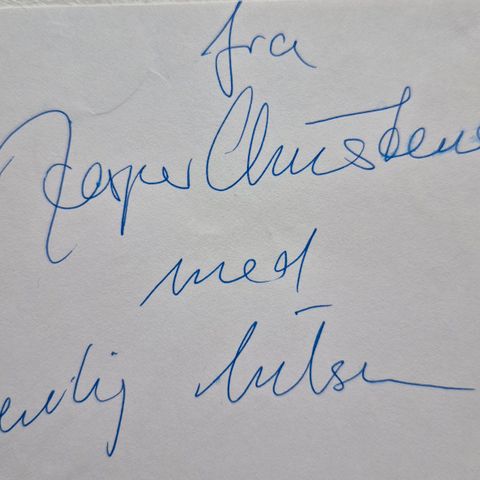 fra
Jesper Christens
med
enlig hilsen